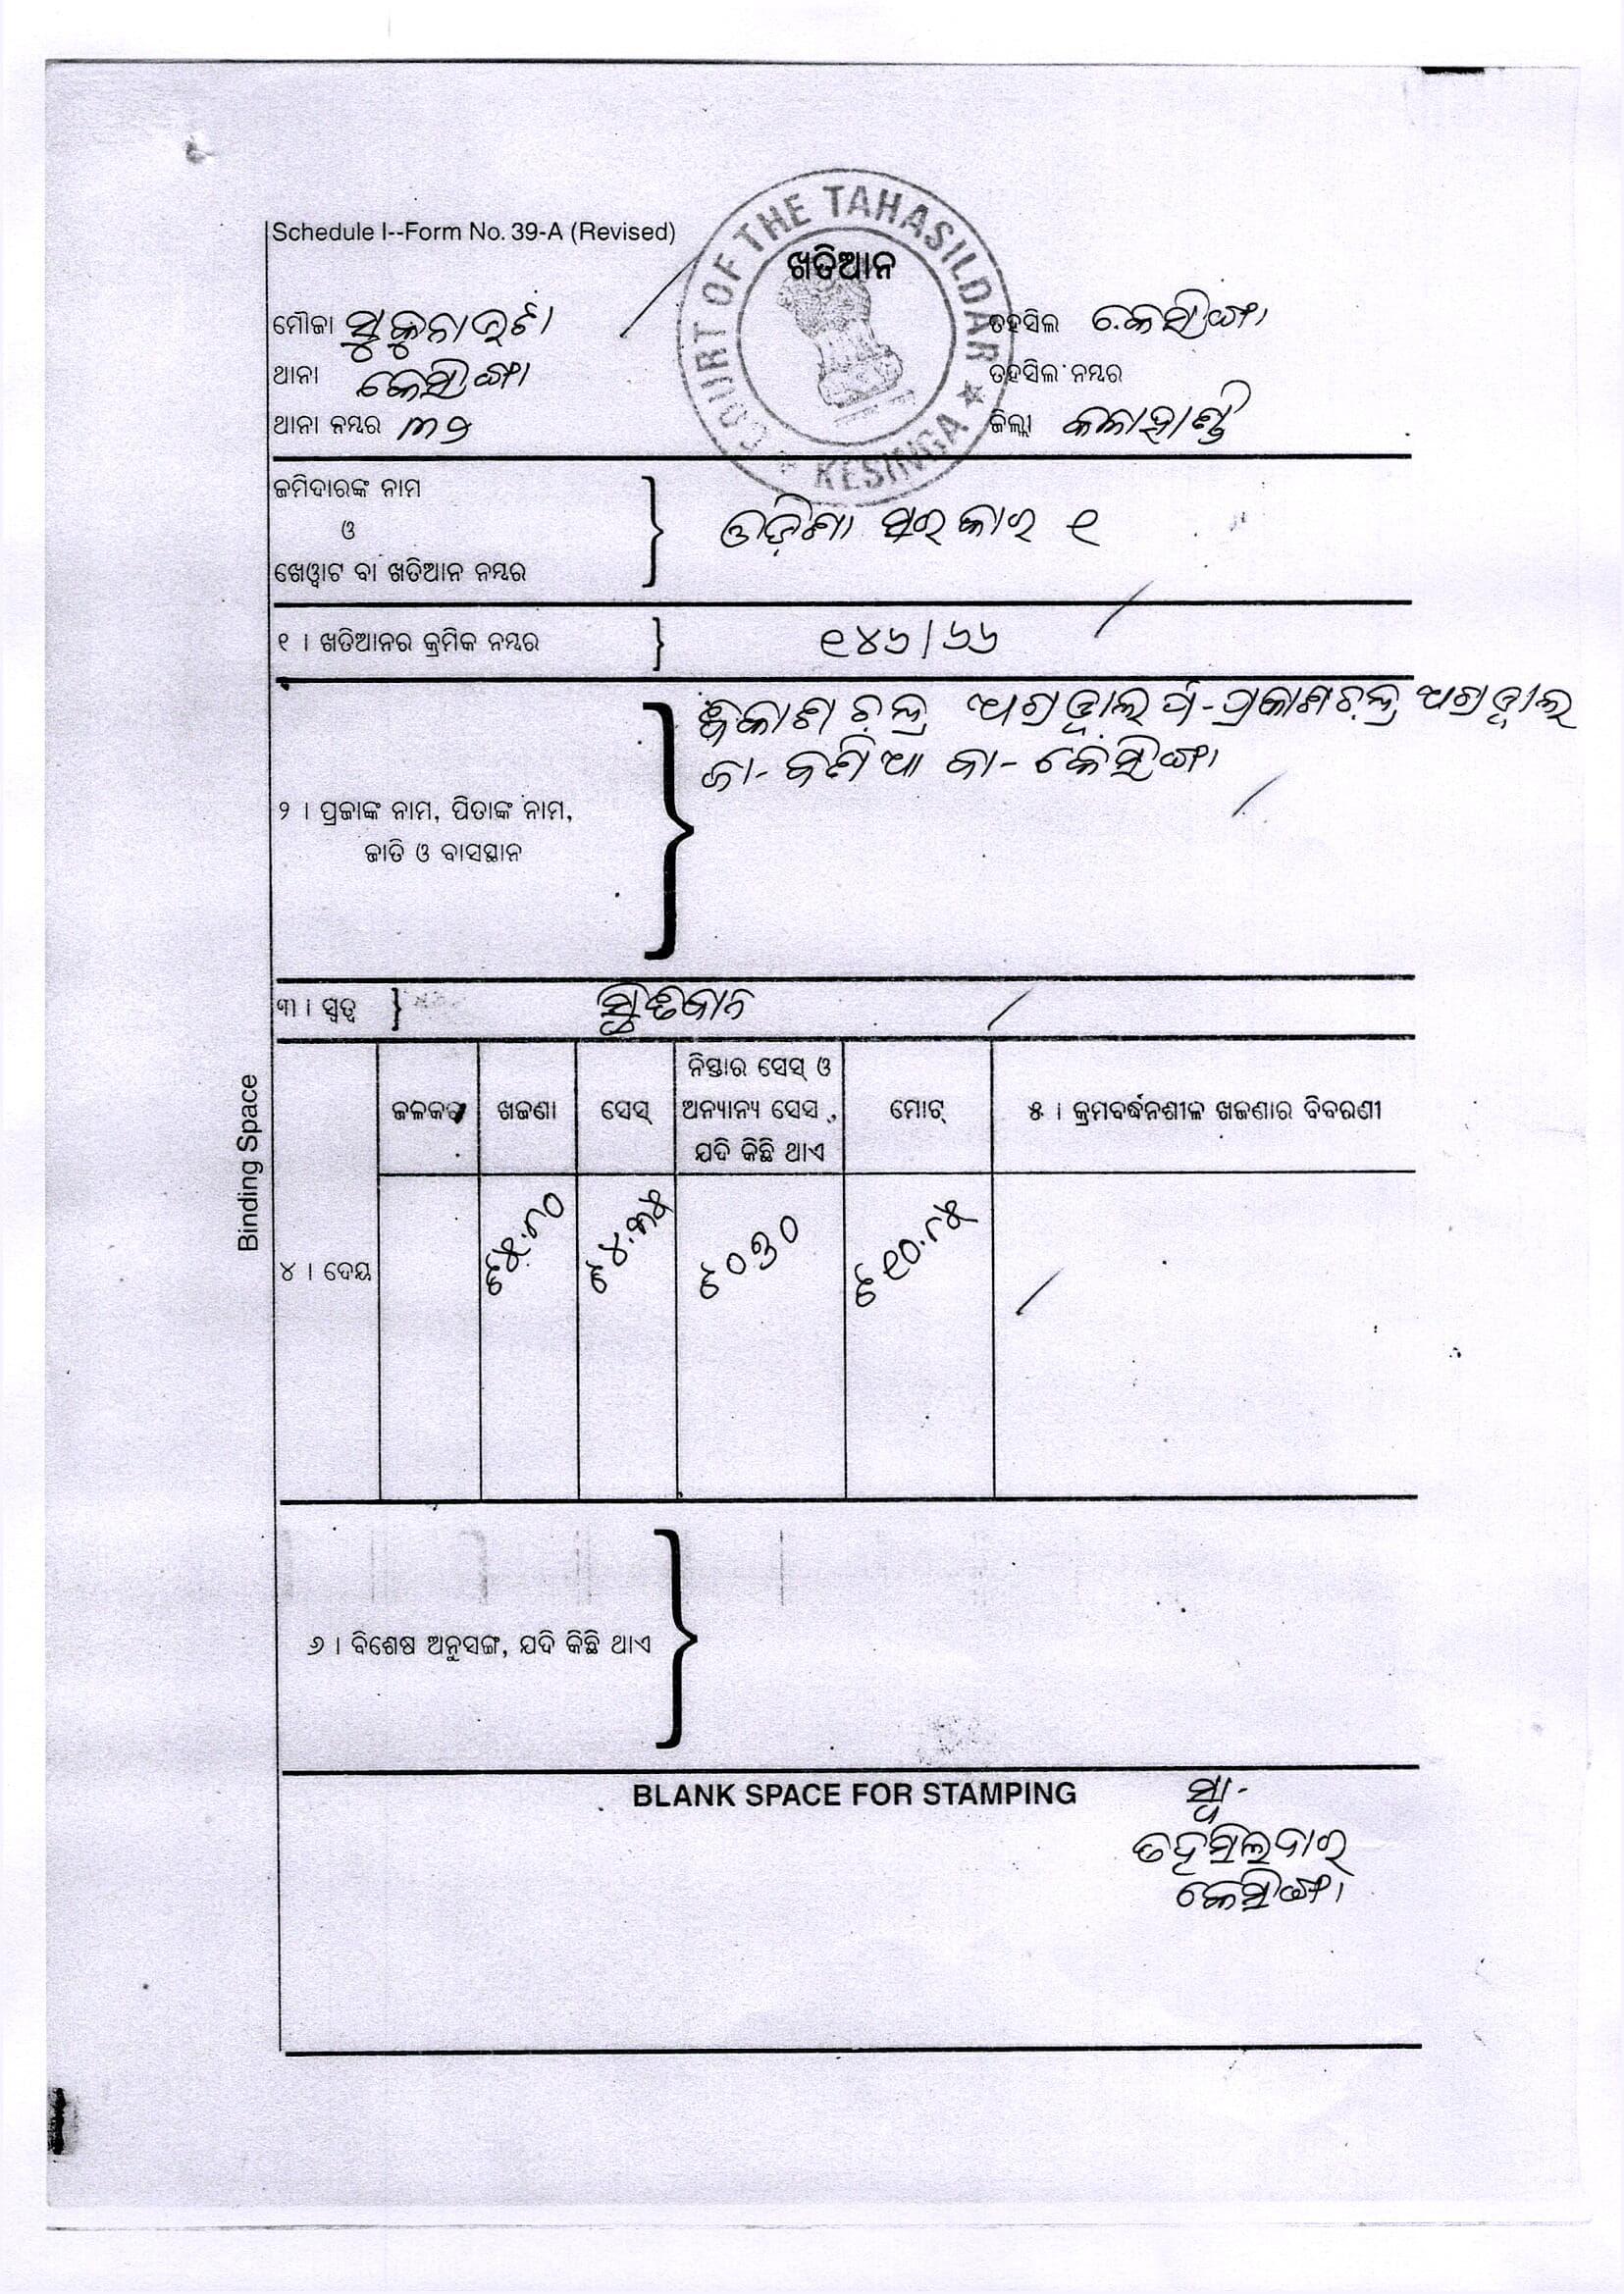 Schedule I--Form No. 39-A (Revised)
COURT OF THE TAHASILDAR
KESINGA
ଖତିଆନ
ମୌଜା ତହସିଲ କେସିଙ୍ଗା
ଥାନା କେସିଙ୍ଗା ତହସିଲ ନମ୍ବର
ଥାନା ନମ୍ବର ୩୨ ଜିଲ୍ଲା କଳାହାଣ୍ଡି
ଜମିଦାରଙ୍କ ନାମ
ଓ
ଖେୱାଟ ବା ଖତିଆନ ନମ୍ବର
ଓଡ଼ିଶା ସରକାର ୧
୧ । ଖତିଆନର କ୍ରମିକ ନମ୍ବର ୧୪୬/୬୬
ଚନ୍ଦ୍ର ଅଗ୍ରୱାଲ ପି-ପ୍ରକାଶଚନ୍ଦ୍ର ଅଗ୍ରୱାଲ
ଜା- ବଣିଆ ବା- କେସିଙ୍ଗା
୨ । ପ୍ରଜାଙ୍କ ନାମ, ପିତାଙ୍କ ନାମ,
ଜାତି ଓ ବାସସ୍ଥାନ
୩ । ସ୍ୱତ୍ୱ ସ୍ଥିତିବାନ
ଜଳକର ଖଜଣା ସେସ୍ ନିସ୍ତାର ସେସ୍ ଓ ଅନ୍ୟାନ୍ୟ ସେସ, ଯଦି କିଛି ଥାଏ ମୋଟ୍ ୫ । କ୍ରମବର୍ଦ୍ଧନଶୀଳ ଖଜଣାର ବିବରଣୀ
୪ । ଦେୟ ଟ୫.୮୦ ଟ୪.୩୫ ଟ୦୭୦ ଟ୧୦.୮୫
୬ । ବିଶେଷ ଅନୁସଙ୍ଗ, ଯଦି କିଛି ଥାଏ
BLANK SPACE FOR STAMPING
ସ୍ୱା-
ତହସିଲଦାର
କେସିଙ୍ଗା
Binding Space